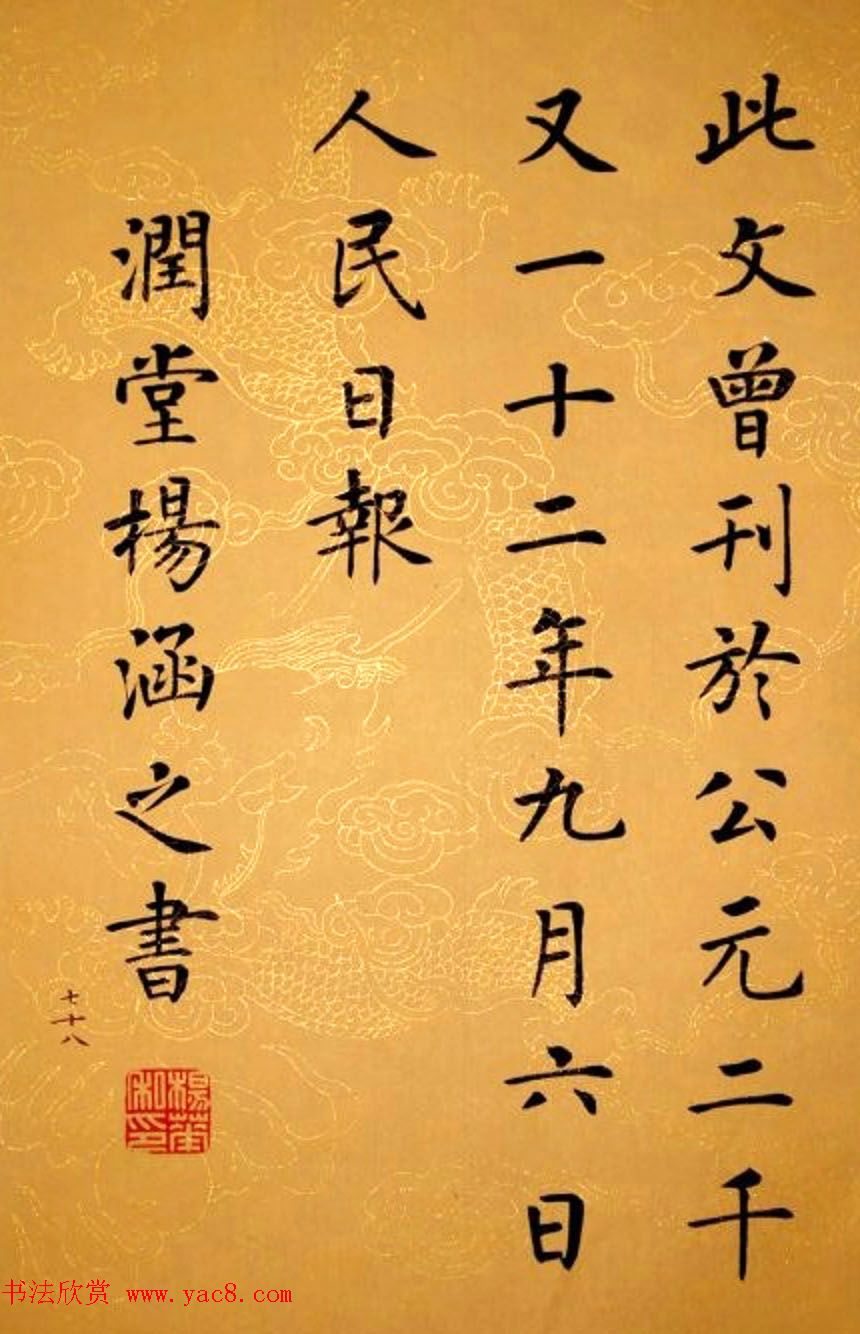 此文曾刊於公元二千
又一十二年九月六日
人民日報
潤堂楊涵之書
七十八
书法欣赏 www.yac8.com